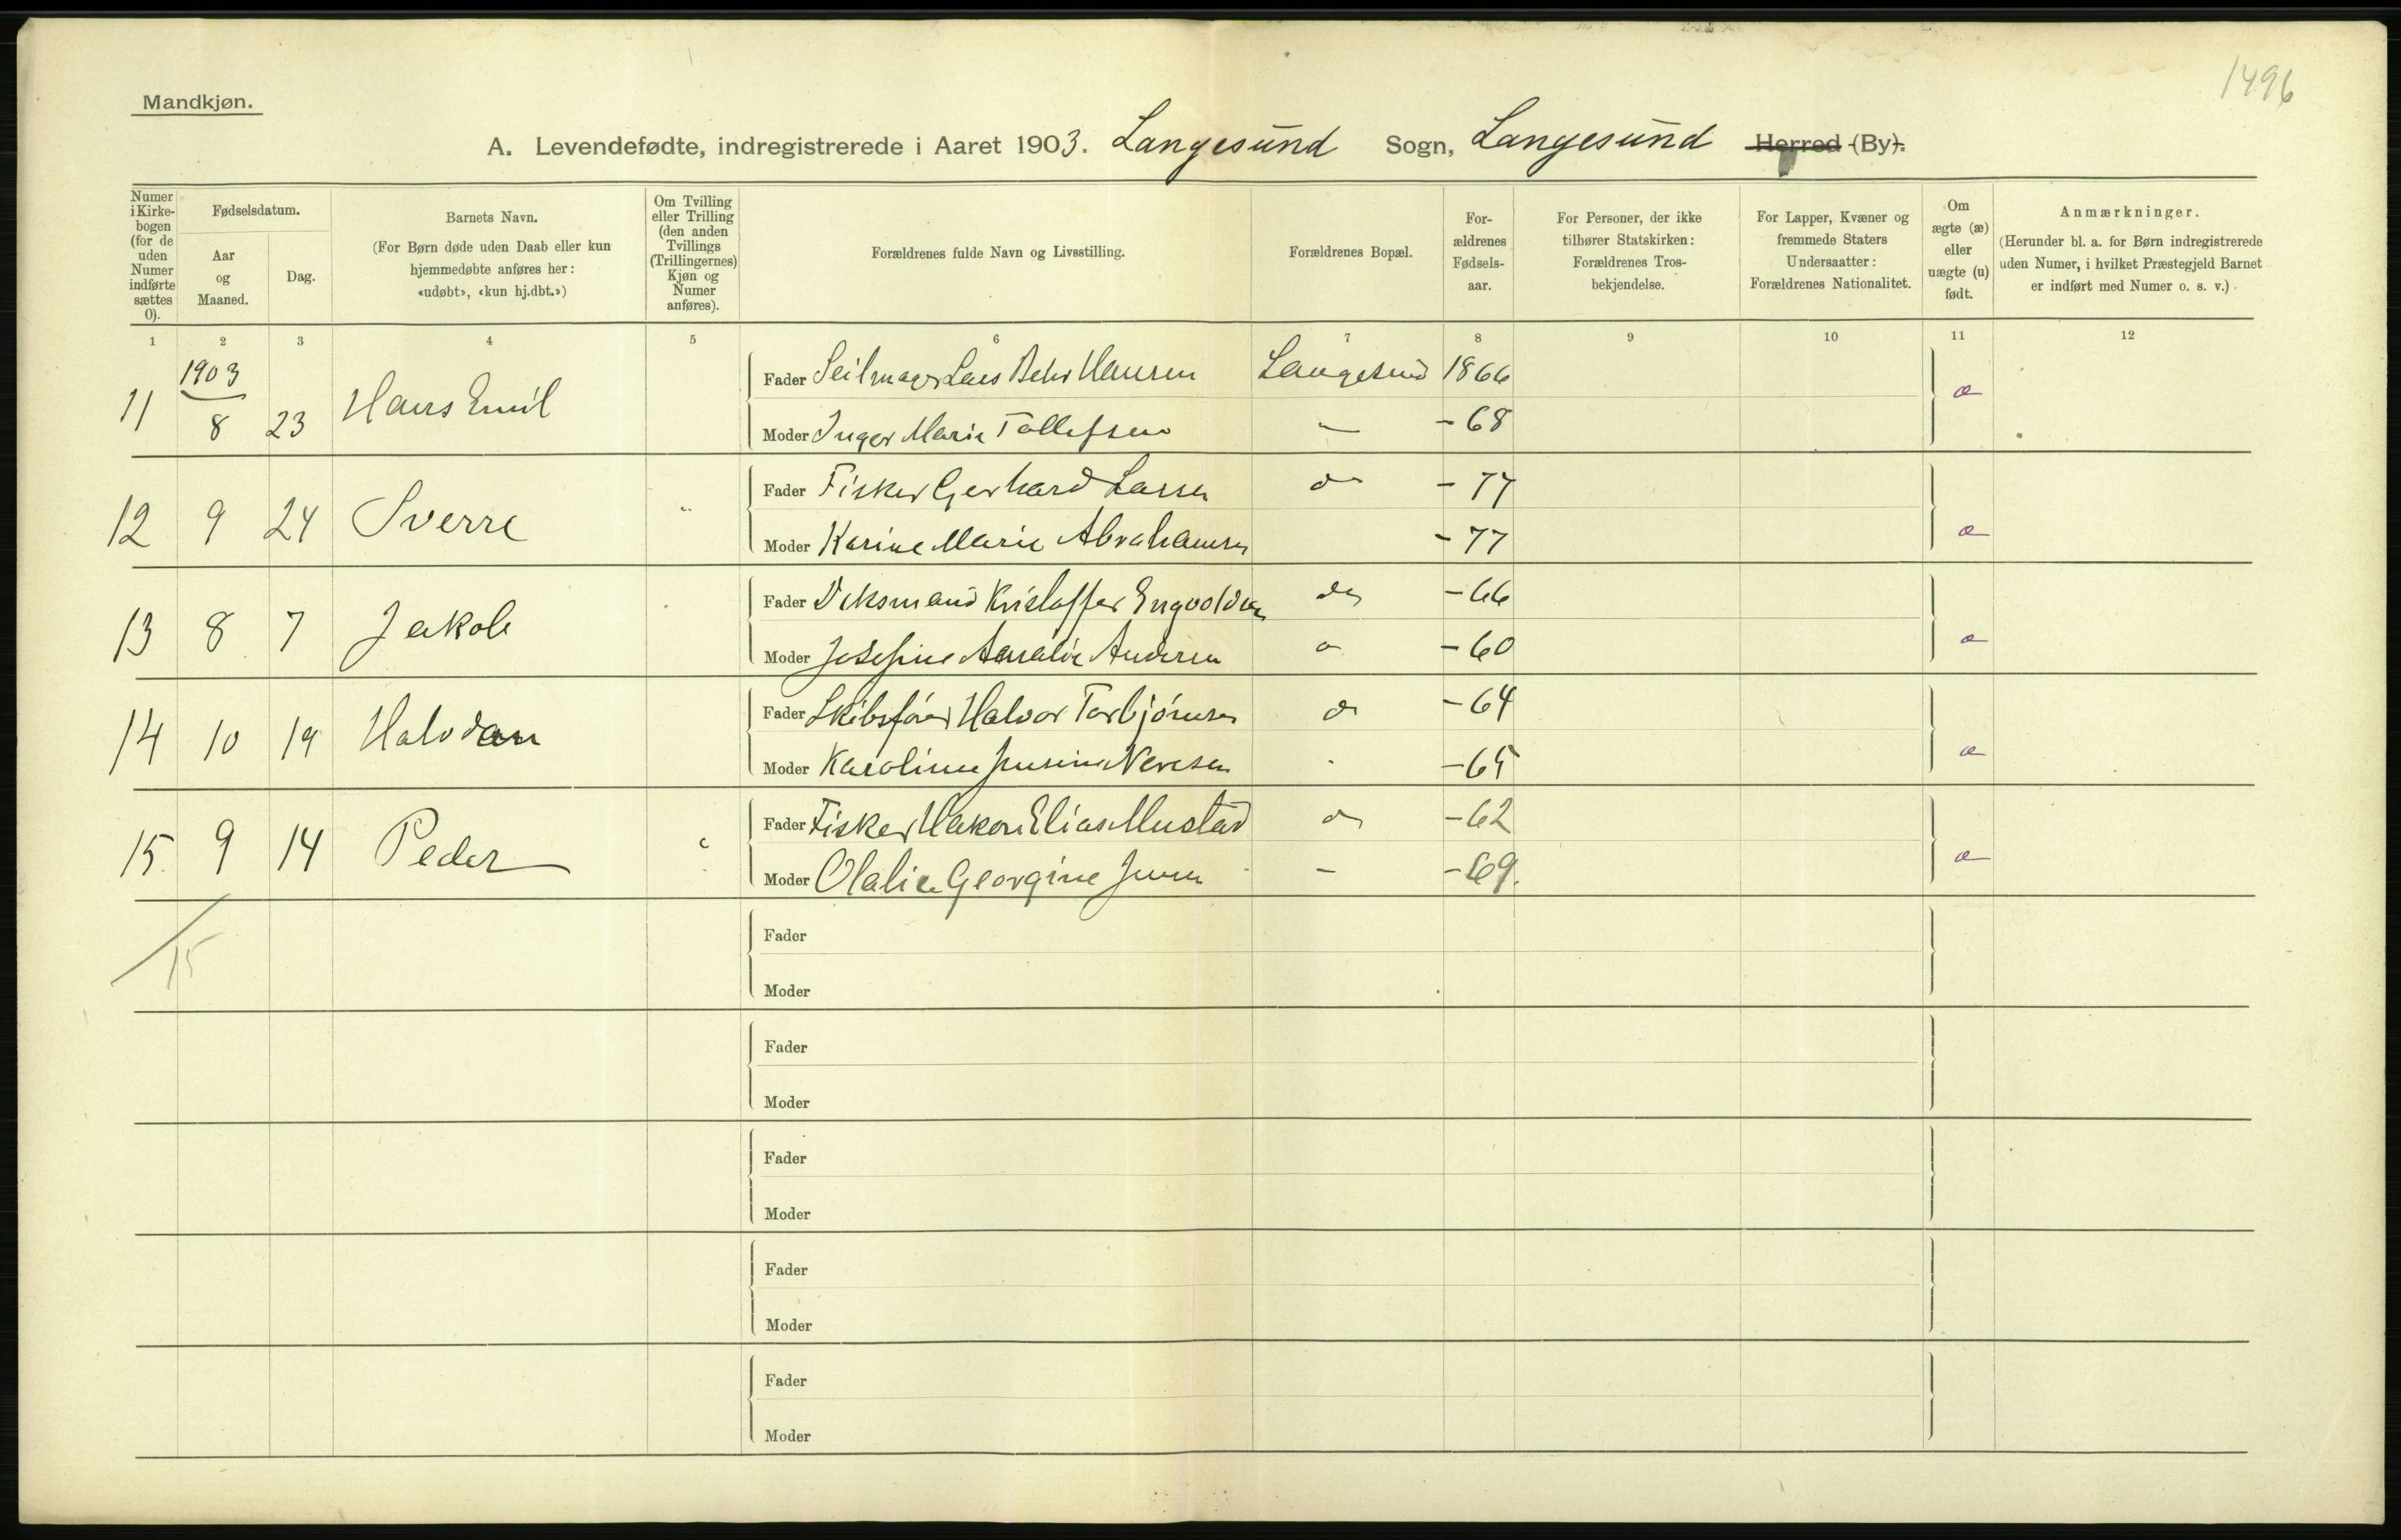 1496
Mandkjøn.
A. Levendefødte, indregistrerede i Aaret 1903. Langesund Sogn, Langesund Herred (By).
Numer i Kirkebogen (for de uden Numer indførte sættes 0).
Fødselsdatum.
Aar og Maaned.
Dag.
Barnets Navn.
(For Børn døde uden Daab eller kun hjemmedøbte anføres her: «udøbt», «kun hj.dbt.»)
Om Tvilling eller Trilling (den anden Tvillings (Trillingernes) Kjøn og Numer anføres).
Forældrenes fulde Navn og Livsstilling.
Forældrenes Bopæl.
Forældrenes Fødselsaar.
For Personer, der ikke tilhører Statskirken: Forældrenes Trosbekjendelse.
For Lapper, Kvæner og fremmede Staters Undersaatter: Forældrenes Nationalitet.
Om ægte (æ) eller uægte (u) født.
Anmærkninger.
(Herunder bl. a. for Børn indregistrerede uden Numer, i hvilket Præstegjeld Barnet er indført med Numer o. s. v.)
1 2 3 4 5 6 7 8 9 10 11 12
1903
11 8 23 Hans Emil Fader Seilmager Lars Behr Hansen Langesund 1866 æ
Moder Inger Marie Tollefsen — - 68
12 9 24 Sverre " Fader Fisker Gerhard Larsen do - 77 æ
Moder Karine Marie Abrahamsen - 77
13 8 7 Jakob Fader Kristoffer Engvoldsen do - 66 æ
Moder Josefine Amalie Andersen - 60
14 10 19 Halvdan Fader Skibsfører Halvor Torbjörnsen do - 64 æ
Moder Karoline - 65
15 9 14 Peder Fader Fisker Hakon Elias Mustad do - 62 æ
Moder Olalie Georgine Jensen — - 69.
15
Fader
Moder
Fader
Moder
Fader
Moder
Fader
Moder
Fader
Moder